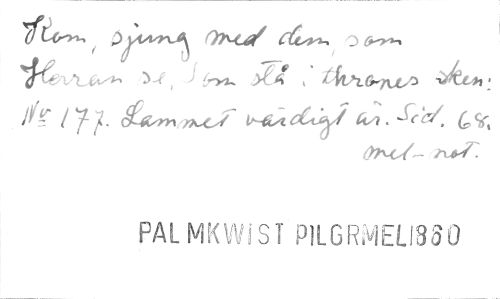 Kom, sjung med dem, som
Herran se, Som stå i thrones sken:
No 177. Lammet värdigt är. Sid. 68.
mel-not.
PALMKWIST PILGRMEL1860